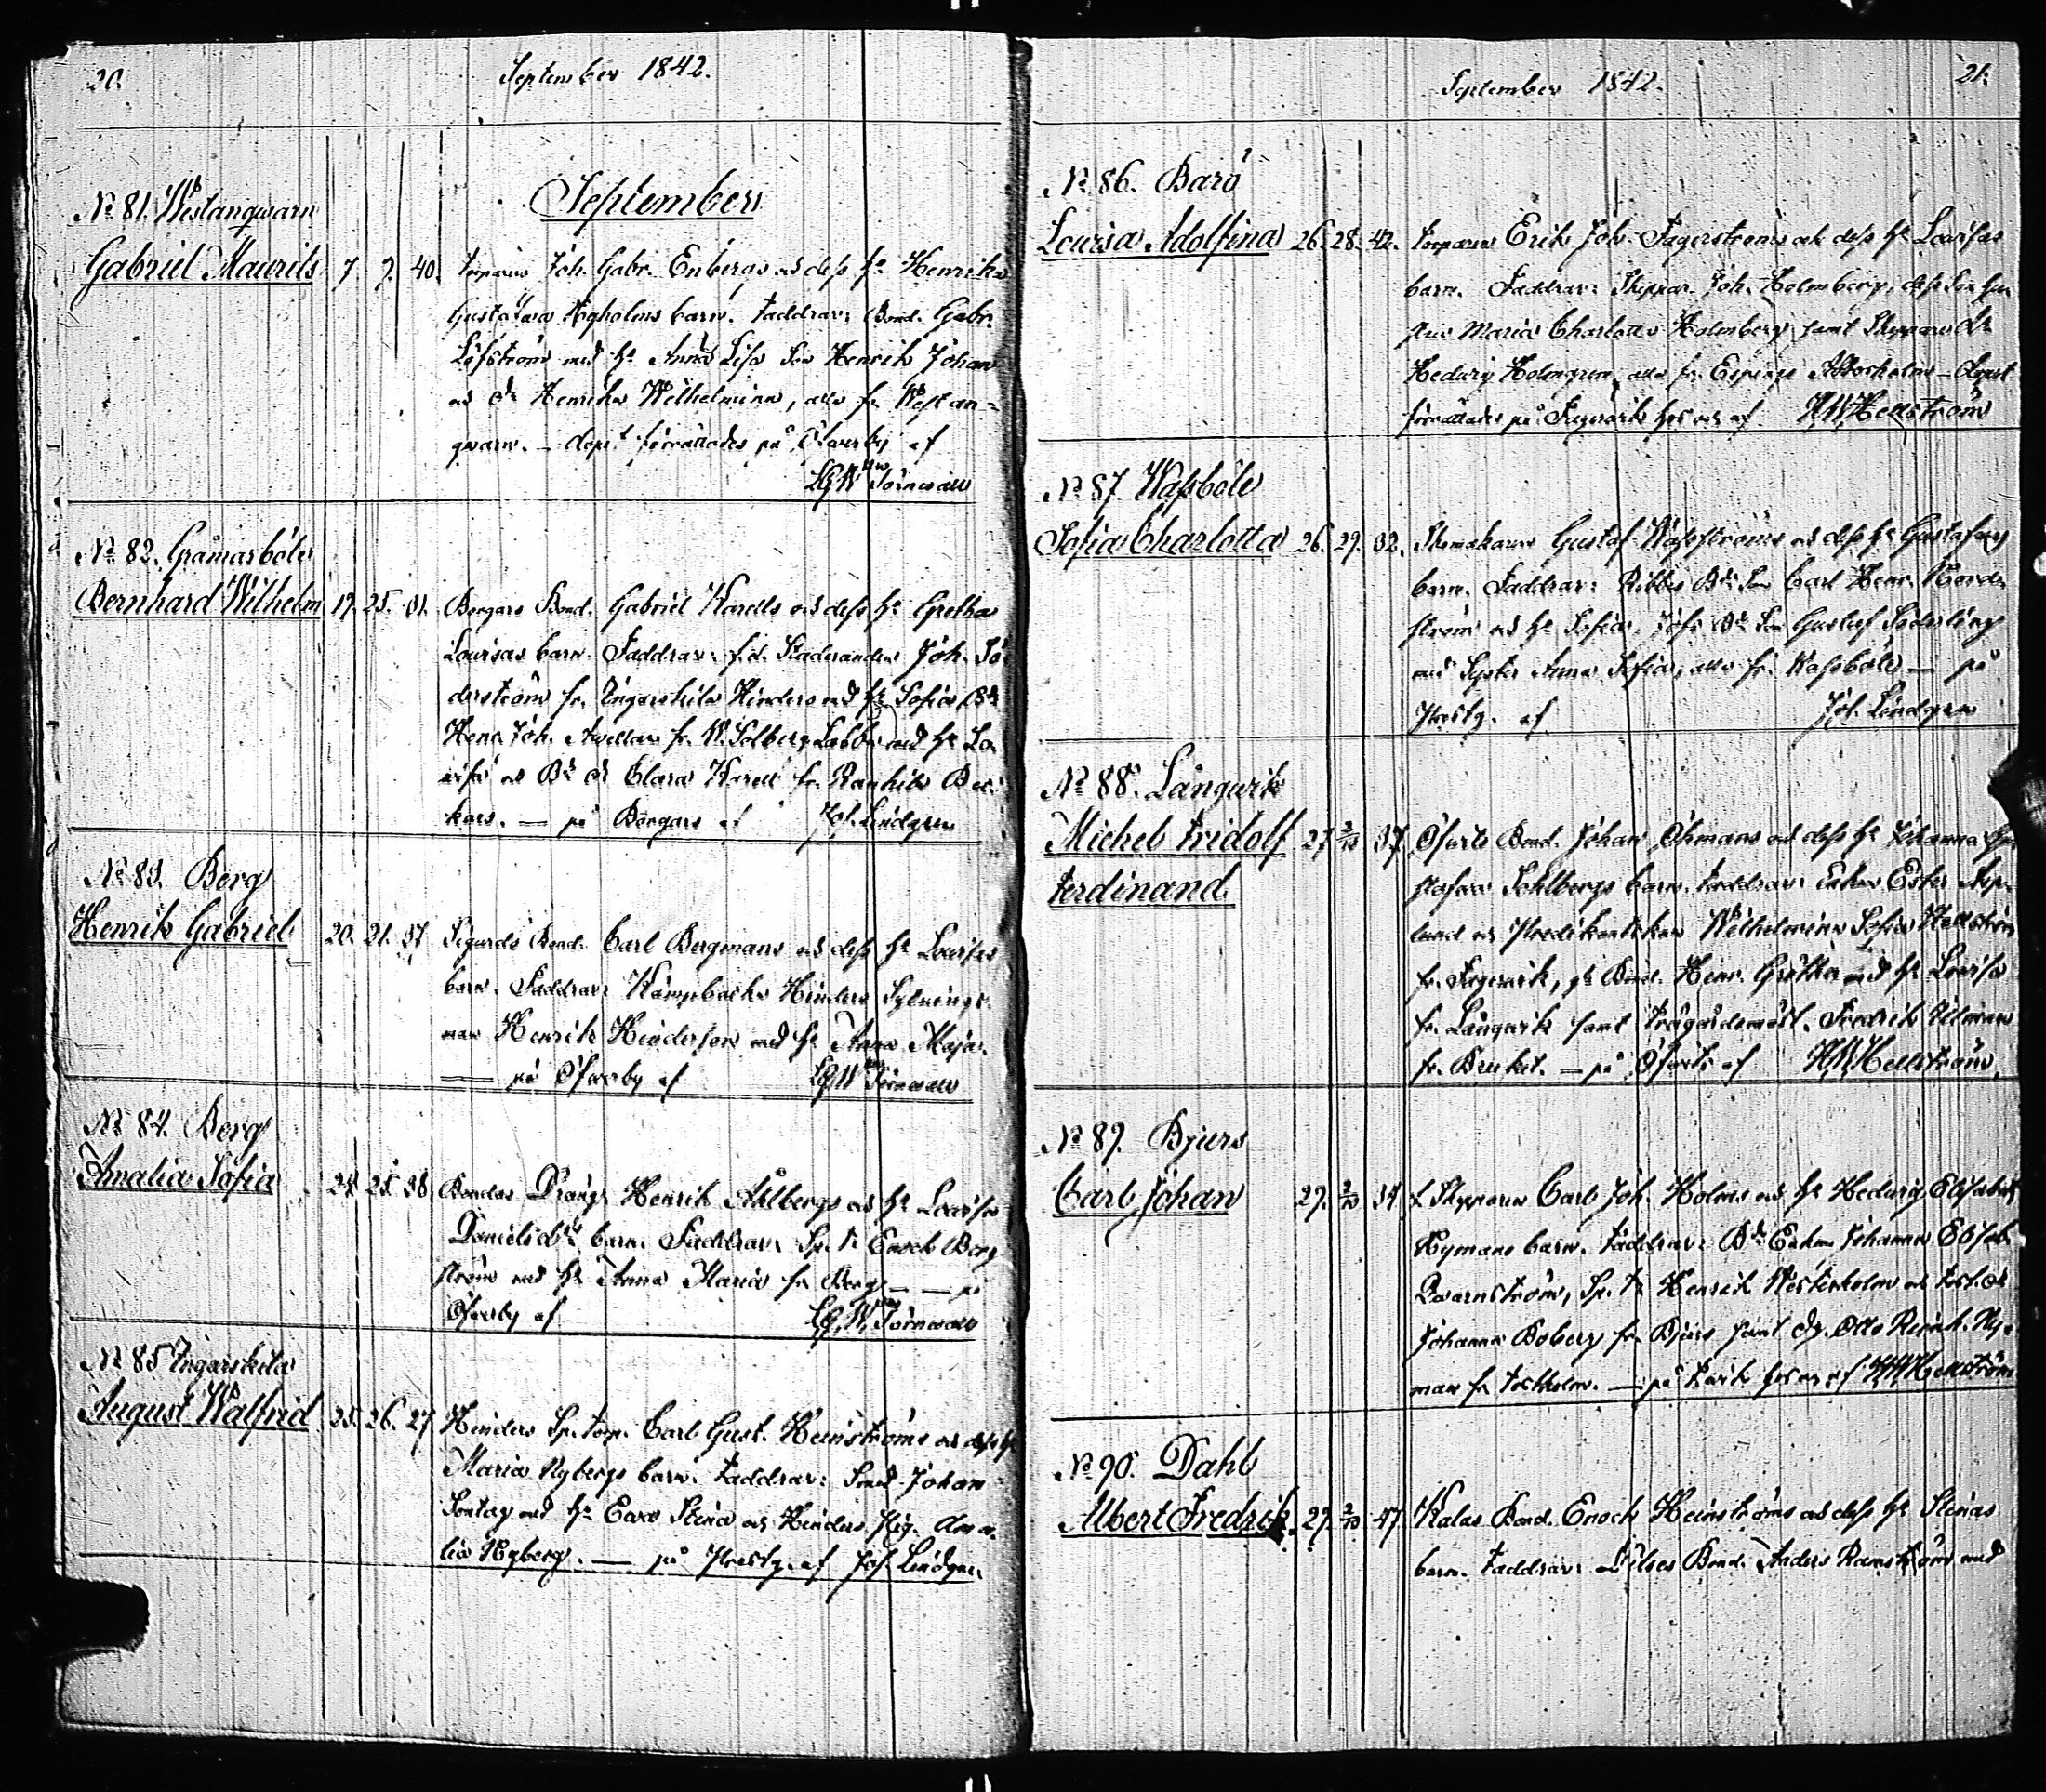 20.
September 1842.
September
No 81. Westanqwarn
Gabriel Maurits 7. 9. 40. Torparen Joh. Gabr. Enbergs och dess Ha Henrika
Gustafava Nyholms barn. Faddrar: Bond. Gabr.
Löfström med Ha Anna Lisa Son Henrik Johan
och Dr Henrika Wilhelmina, alla fr. Westan-
qwarn. – dopet förrättades på Ofwerby af
LGW Törnwall
No 82. Gråmarsböle
Bernhard Wilhelm 19. 25. 31. Borgars Bond. Gabriel Karells och dess Ha Gretha
Lovisas barn. Faddrar: f.d. Joh. Sö
derström fr. Ingarskila Hinders med Ha Sofia, Bde
Henr. Joh. fr. W. Solberg Labbas med Ha Lo
visa och Bde Dr Clara Karell fr. Rankila Bec-
kars. — på Borgars af Joh. Lindgren
No 83. Berg
Henrik Gabriel 20. 21. 37. Sigurds Bond. Carl Bergmans och dess Ha Lovisas
barn. Faddrar: Kämpbacka Hinders Sytnings-
man Henrik Hinderson med Ha Anna Maja.
— på Ofwerby af LGW Törnwall
No 84. Berg
Amalia Sofia 24. 25. 38. Bondas Dräng Henrik Ahlbergs och Ha Lovisa
Danielsdr barn. Faddrar: Sp. Tr Enoch Berg
ström med Ha Anna Maria fr. Berg — på
Ofwerby af LGW Törnwall
No 85 Ingarskila
August Walfrid 25. 26. 27. Hinders Sp. Torp. Carl Gust. Heinströms och dess Ha
Maria Nybergs barn. Faddrar: Johan
Sontag med Ha Eva Stina och Hinders Pig. Ama
lia Nyberg. — på Prestg. af Joh. Lindgren
September 1842.
21.
No 86. Barö
Lovisa Adolfina 26. 28. 42. Torparen Erik Joh. Fagerströms och dess Ha Lovisas
barn. Faddrar: Skeppar. Joh. Holmberg, dess Son Gu
Maria Charlotta Holmberg samt Skepparen Dr
Hedwig Holmgren, alla fr. Espings – dopet
förrättades på Fagerwik hos och af HWHellström
No 87 Wassböle
Sofia Charlotta 26. 29. 32. Skomakaren Gustaf Wassströms och dess Ha Gustafvas
barn. Faddrar: Ribbis Bde Son Carl Henr. Nord-
ström och Ha Sofia, Bde Son Gustaf Söderling
med Syster Anna Sofia, alla fr. Wassböle — på
Prestg. af Joh. Lindgren
No 88. Långwik
Michel Fridolf 27. 2/10 37. Öfwils Bond. Johan Öhmans och dess Ha Johanna Gu
Ferdinand stafava Sahlbergs barn. Faddrar: Enkan Ester Asp-
lund och Predikantskan Wilhelmina Sofia Hellström
fr. Fagerwik, Bond. Henr. Gretha med Ha Lovisa
fr. Långwik samt Trägårdsmäst. Fredrik
fr. Bruket. — på af HWHellström
No 89. Bjurs
Carl Johan 29. 2/10 34. Skepparen Carl Joh. Holms och Ha Hedwig Elisabeth
Nymans barn. Faddrar: Bde Enkan Johanna Elisab.
Qvarnström, Sp. Tr Henrik Westerholm och
Johanna Boberg fr. Bjurs samt Otto Reinh. Ny-
man fr. — på hos och af HWHellström
No 90. Dahl
Albert Fredrik 29. 2/10 47. Kalas Bond. Enoch Heinströms och dess Ha Stinas
barn. Faddrar: Nilses Bond. Anders Ramström med